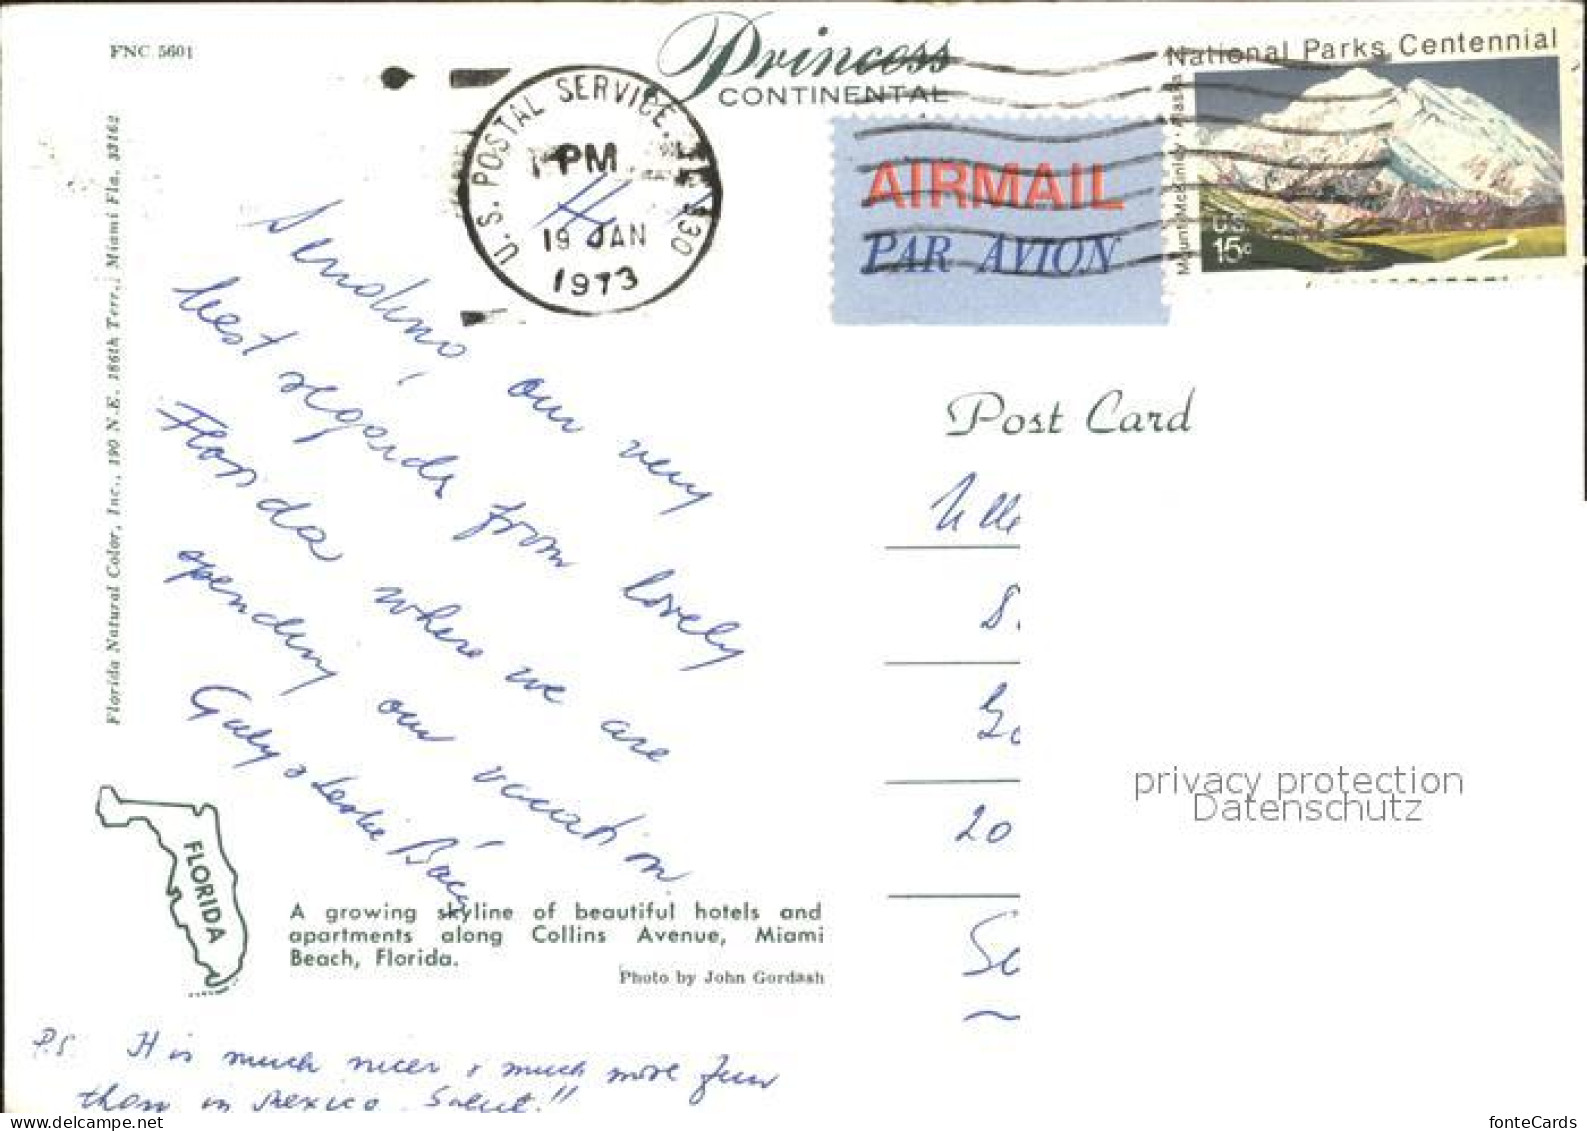 FNC 5601
Princess
CONTINENTAL
U.S. POSTAL SERVICE.
PM
19 JAN
1973
330
AIRMAIL
PAR AVION
National Parks Centennial
Mount McKinley · Alaska
U.S.
15c
Florida Natural Color, Inc., 190 N.E. 186th Terr., Miami Fla. 33162
Sending our very
best regards from lovely
Florida where we are
spending our vacation.
Gaby & Leslie
Post Card
20
privacy protection
Datenschutz
FLORIDA
A growing skyline of beautiful hotels and
apartments along Collins Avenue, Miami
Beach, Florida.
Photo by John Gordash
P.S. It is much nicer & much more fun
than in Mexico. Salut!!
www.ansichtskarten-center.de
fonteCards